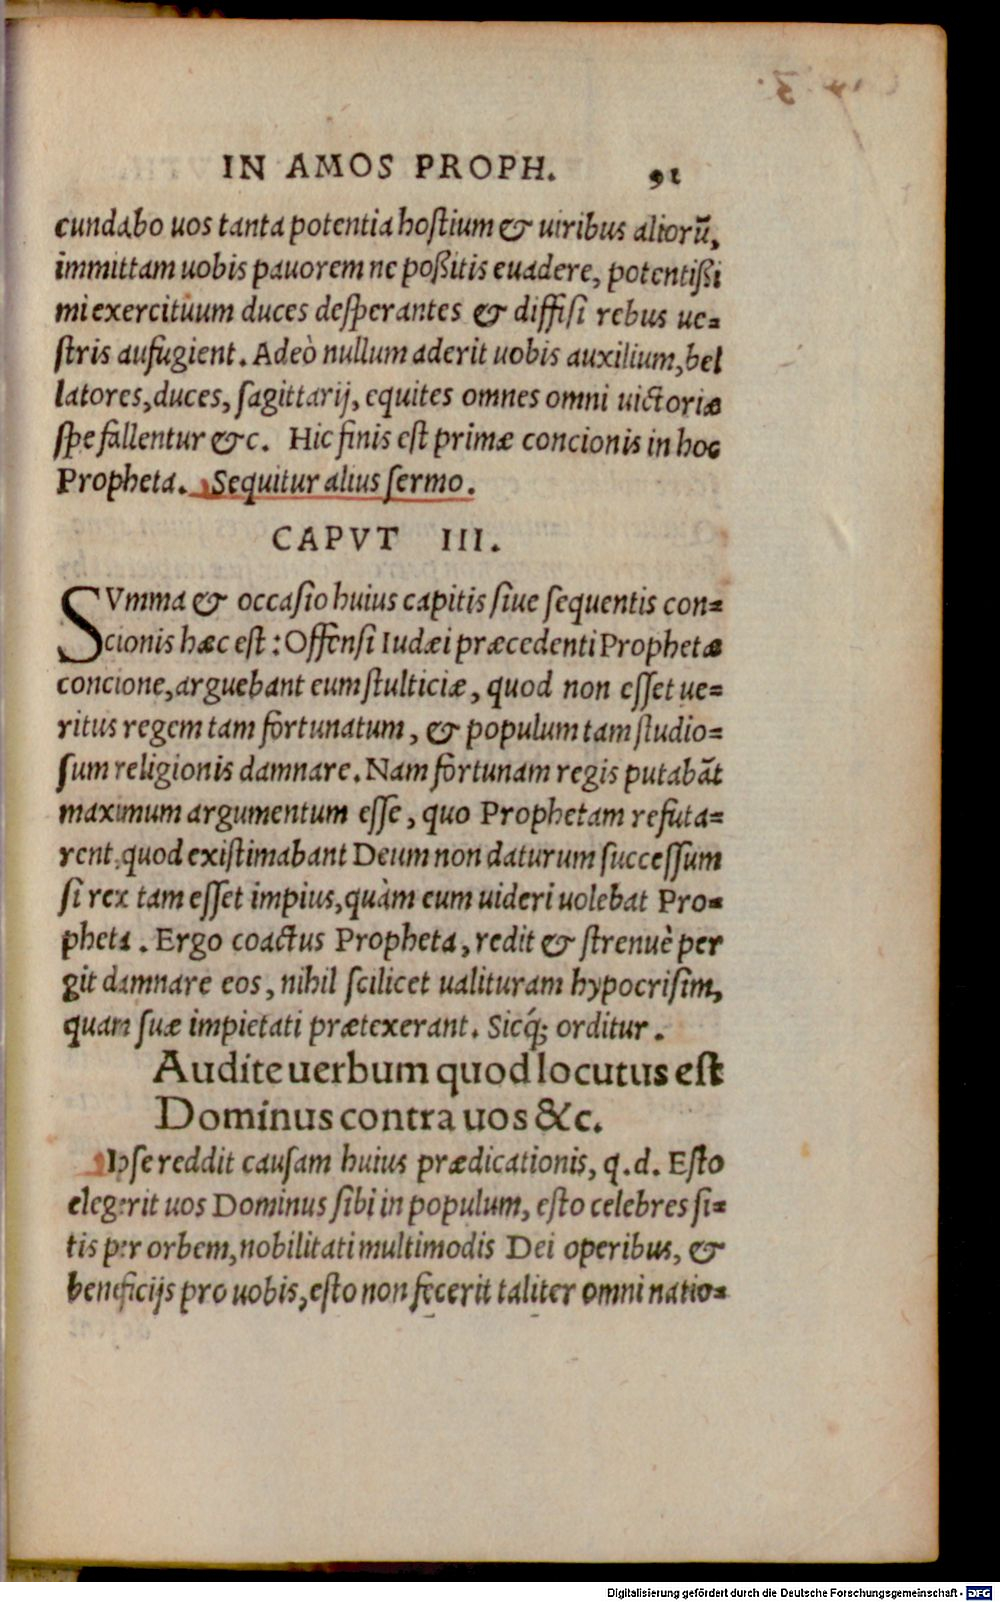 IN AMOS PROPH. 91
cundabo uos tanta potentia hoſtium & uiribus aliorũ,
immittam uobis pauorem ne poßitis euadere, potentißi
mi exercituum duces deſperantes & diffiſi rebus ue=
ſtris aufugient. Adeò nullum aderit uobis auxilium, bel
latores, duces, ſagittarij, equites omnes omni uictoriæ
ſpe fallentur &c. Hic finis eſt primæ concionis in hoc
Propheta. Sequitur alius ſermo.
CAPVT III.
SVmma & occaſio huius capitis ſiue ſequentis con=
cionis hæc eſt: Offenſi Iudæi præcedenti Prophetæ
concione, arguebant eum ſtulticiæ, quod non eſſet ue=
ritus regem tam fortunatum, & populum tam ſtudio=
ſum religionis damnare. Nam fortunam regis putabãt
maximum argumentum eſſe, quo Prophetam refuta=
rent, quod exiſtimabant Deum non daturum ſucceſſum
ſi rex tam eſſet impius, quàm eum uideri uolebat Pro=
pheta. Ergo coactus Propheta, redit & ſtrenuè per
git damnare eos, nihil ſcilicet ualituram hypocriſim,
quam ſuæ impietati prætexerant. Sicq́; orditur.
Audite uerbum quod locutus eſt
Dominus contra uos &c.
Ipſe reddit cauſam huius prædicationis, q.d. Eſto
elegerit uos Dominus ſibi in populum, eſto celebres ſi=
tis per orbem, nobilitati multimodis Dei operibus, &
beneficijs pro uobis, eſto non fecerit taliter omni natio=
Digitalisierung gefördert durch die Deutsche Forschungsgemeinschaft - DFG